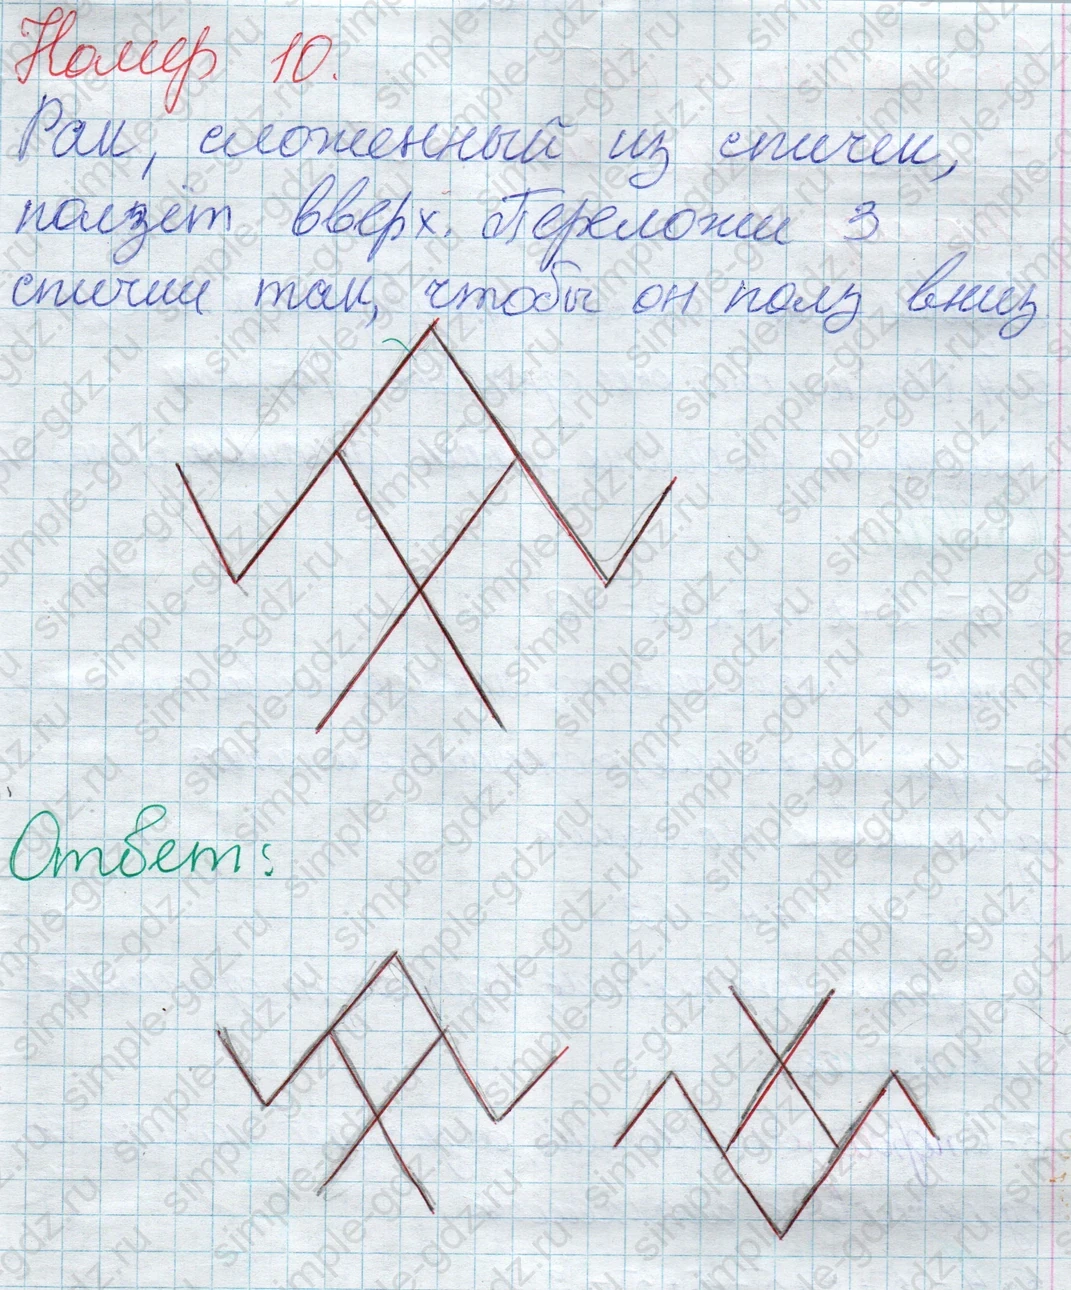 Номер 10.
Рак, сложенный из спичек,
ползёт вверх. Переложи 3
спички так, чтобы он полз вниз
Ответ:
simple-gdz.ru